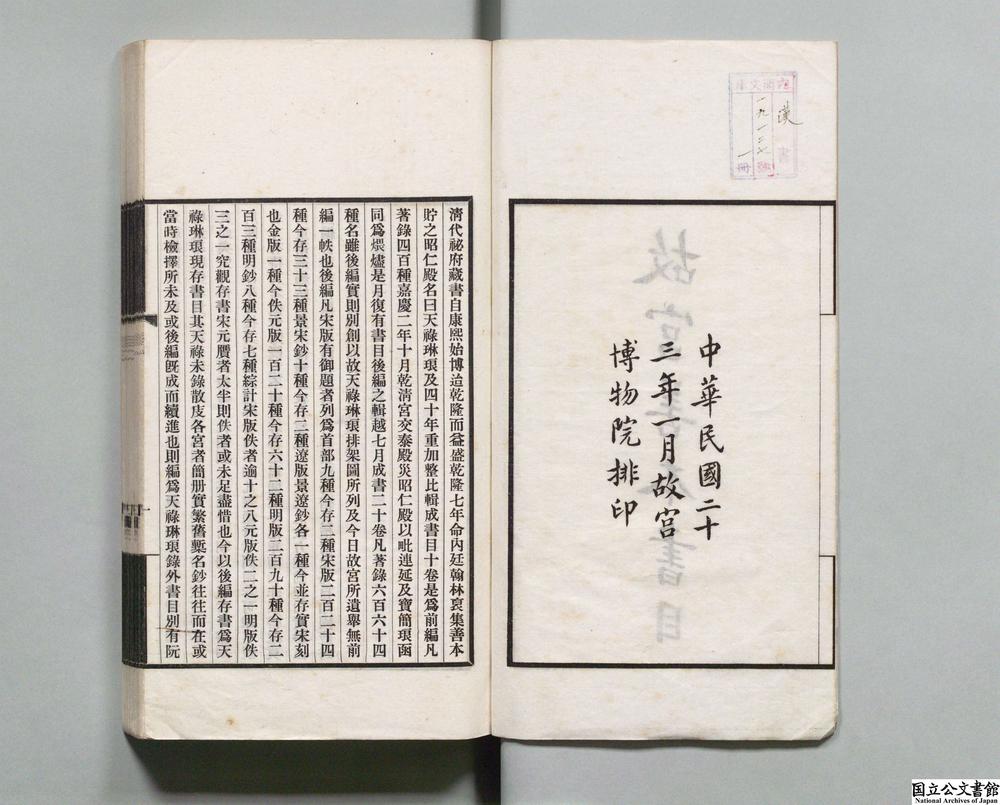 中華民國二十
三年一月故宮
博物院排印
漢
書
一九一二七
號
一
冊
內閣文庫
故宮善本書目
清代祕府藏書自康熙始博迨乾隆而益盛乾隆七年命內廷翰林裒集善本
貯之昭仁殿名曰天祿琳琅及四十年重加整比輯成書目十卷是爲前編凡
著錄四百種嘉慶二年十月乾清宮交泰殿災昭仁殿以毗連延及寶簡琅函
同爲煨燼是月復有書目後編之輯越七月成書二十卷凡著錄六百六十四
種名雖後編實則別創以故天祿琳琅排架圖所列及今日故宮所遺舉無前
編一帙也後編凡宋版有御題者列爲首部九種今存二種宋版二百二十四
種今存三十三種景宋鈔十種今存二種遼版景遼鈔各一種今並存實宋刻
也金版一種今佚元版一百二十種今存六十二種明版二百九十種今存二
百三種明鈔八種今存七種綜計宋版佚者逾十之八元版佚二之一明版佚
三之一究觀存書宋元贋者太半則佚者或未足盡惜也今以後編存書爲天
祿琳琅現存書目其天祿未錄散庋各宮者簡册實繁舊槧名鈔往往而在或
當時檢擇所未及或後編旣成而續進也則編爲天祿琳琅錄外書目別有阮
国立公文書館
National Archives of Japan